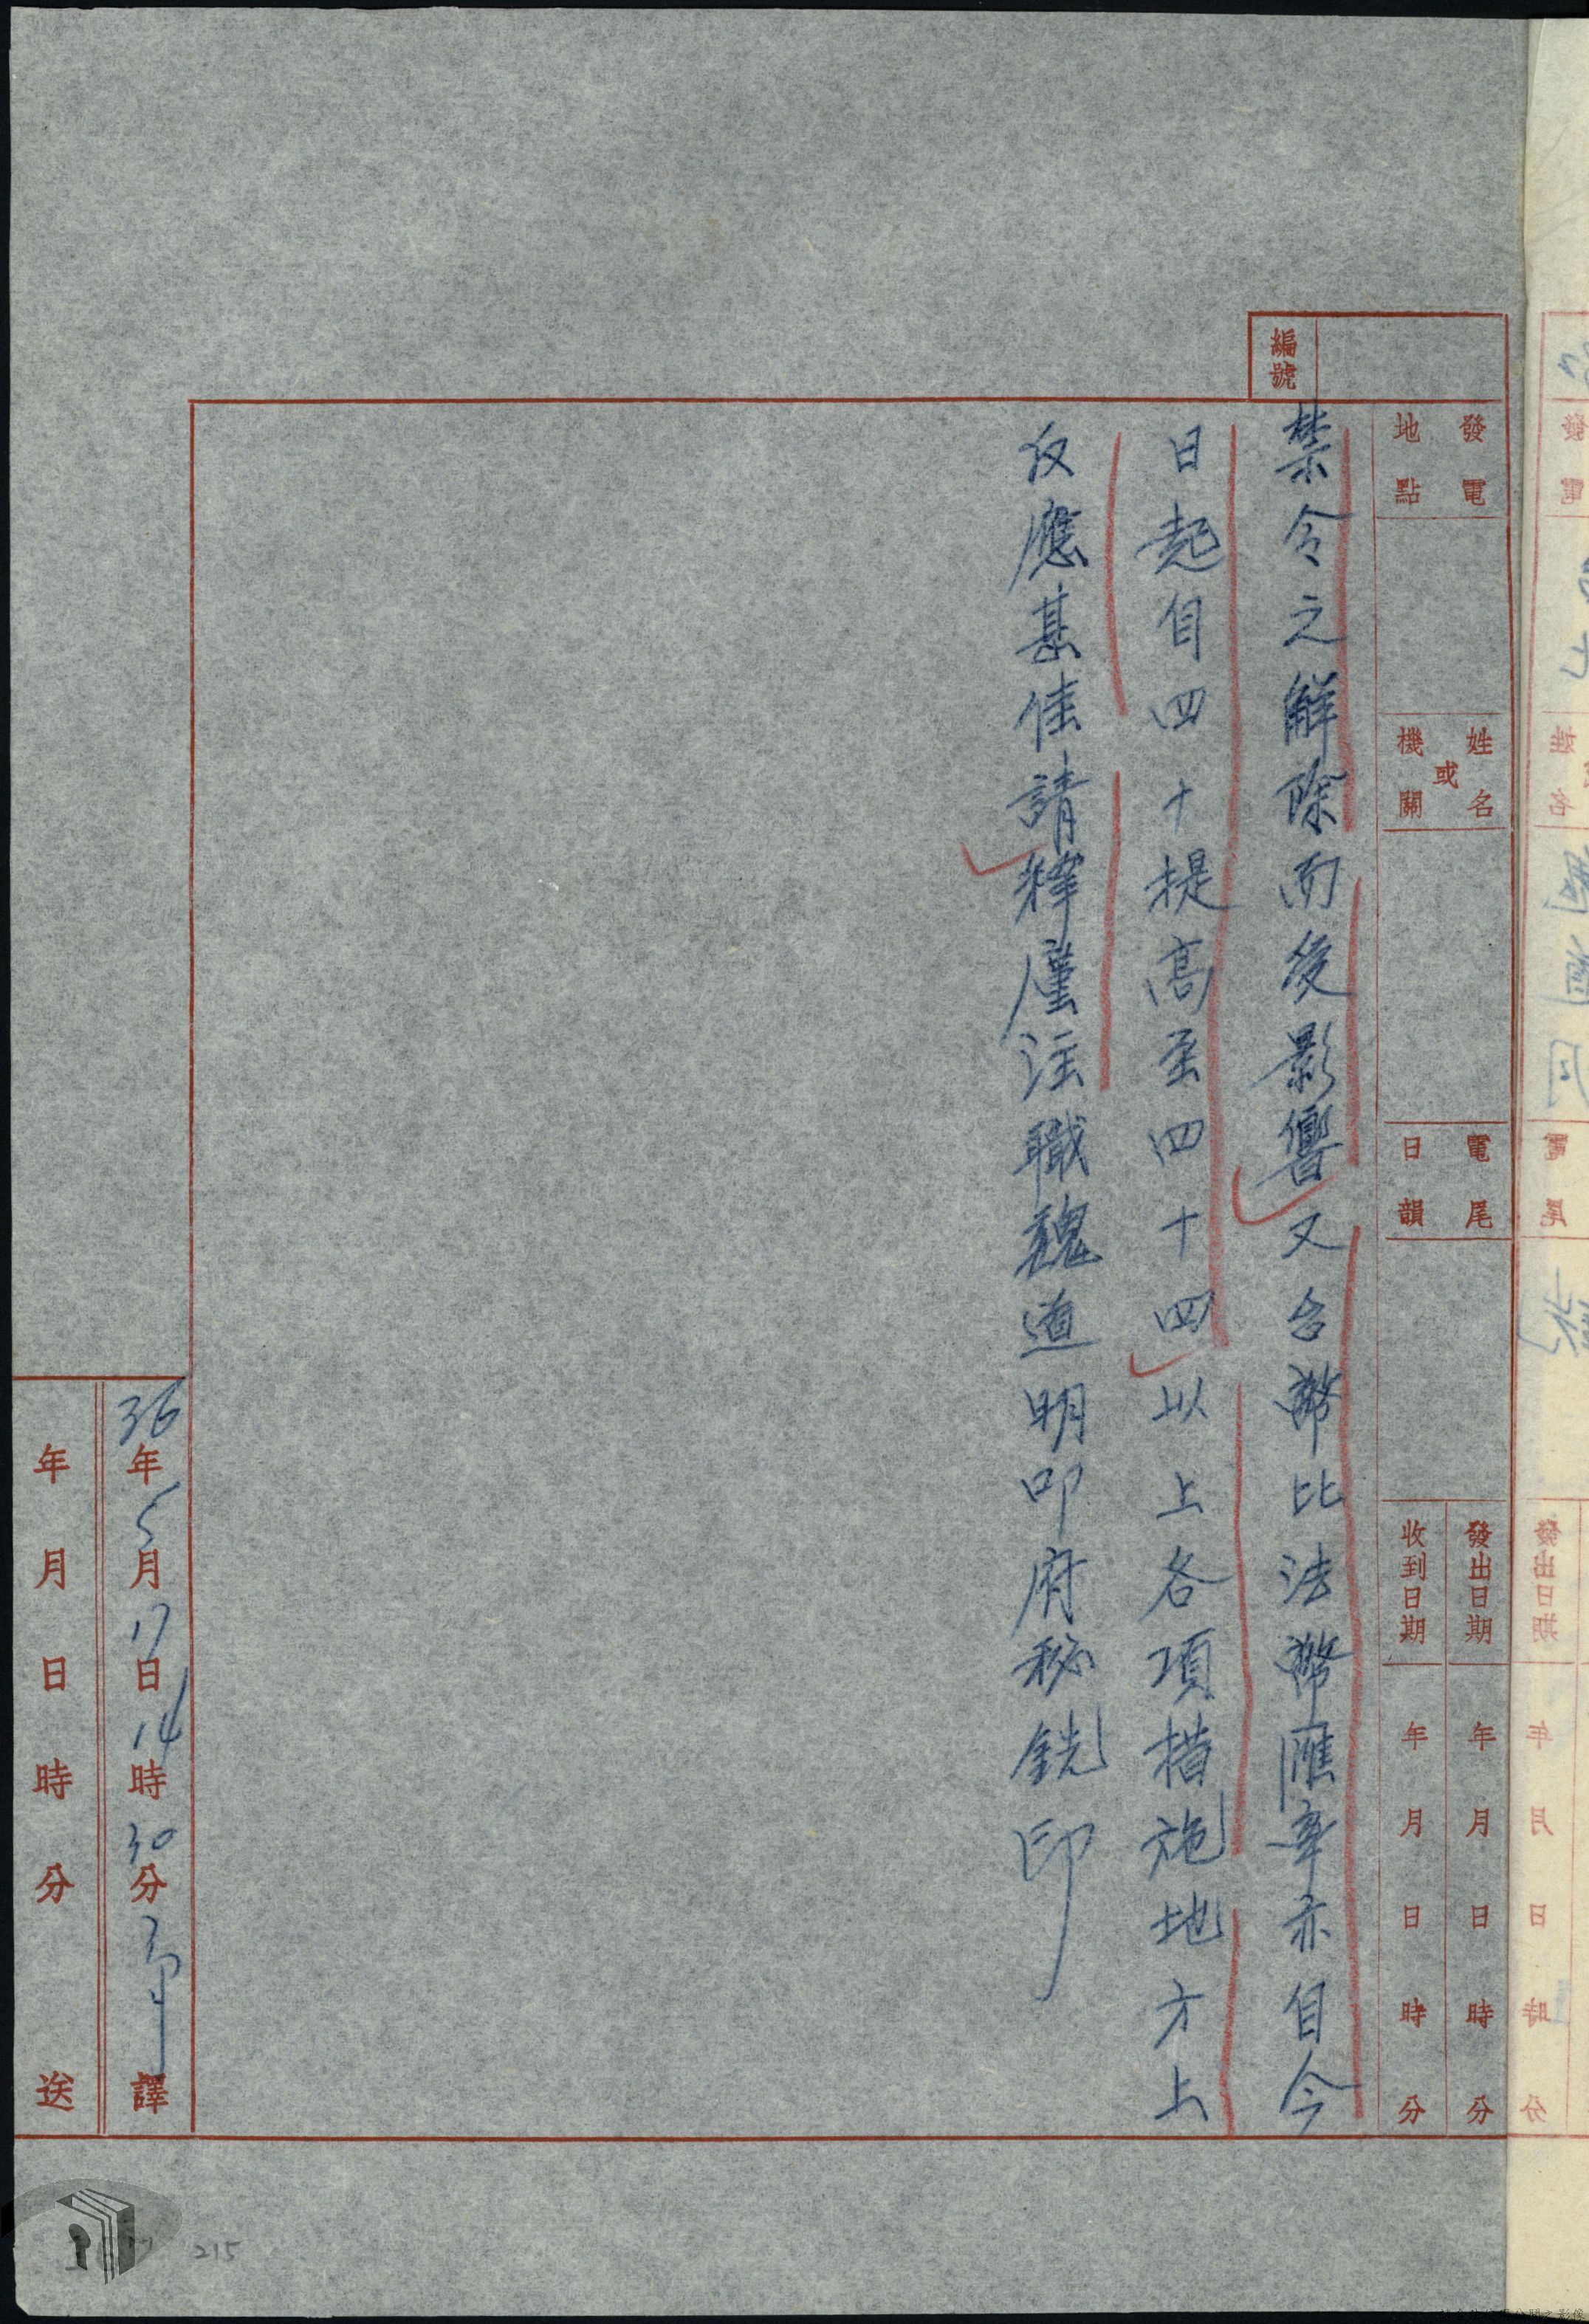 編號
發電地點
姓名或機關
電尾日韻
發出日期 年 月 日 時 分
收到日期 年 月 日 時 分
禁令之解除而後影響又台幣比法幣匯率亦自今
日起自四十提高至四十四以上各項措施地方上
反應甚佳請釋廑注職魏道明叩府秘銑印
36年5月17日14時30分 譯
年 月 日 時 分 送
215